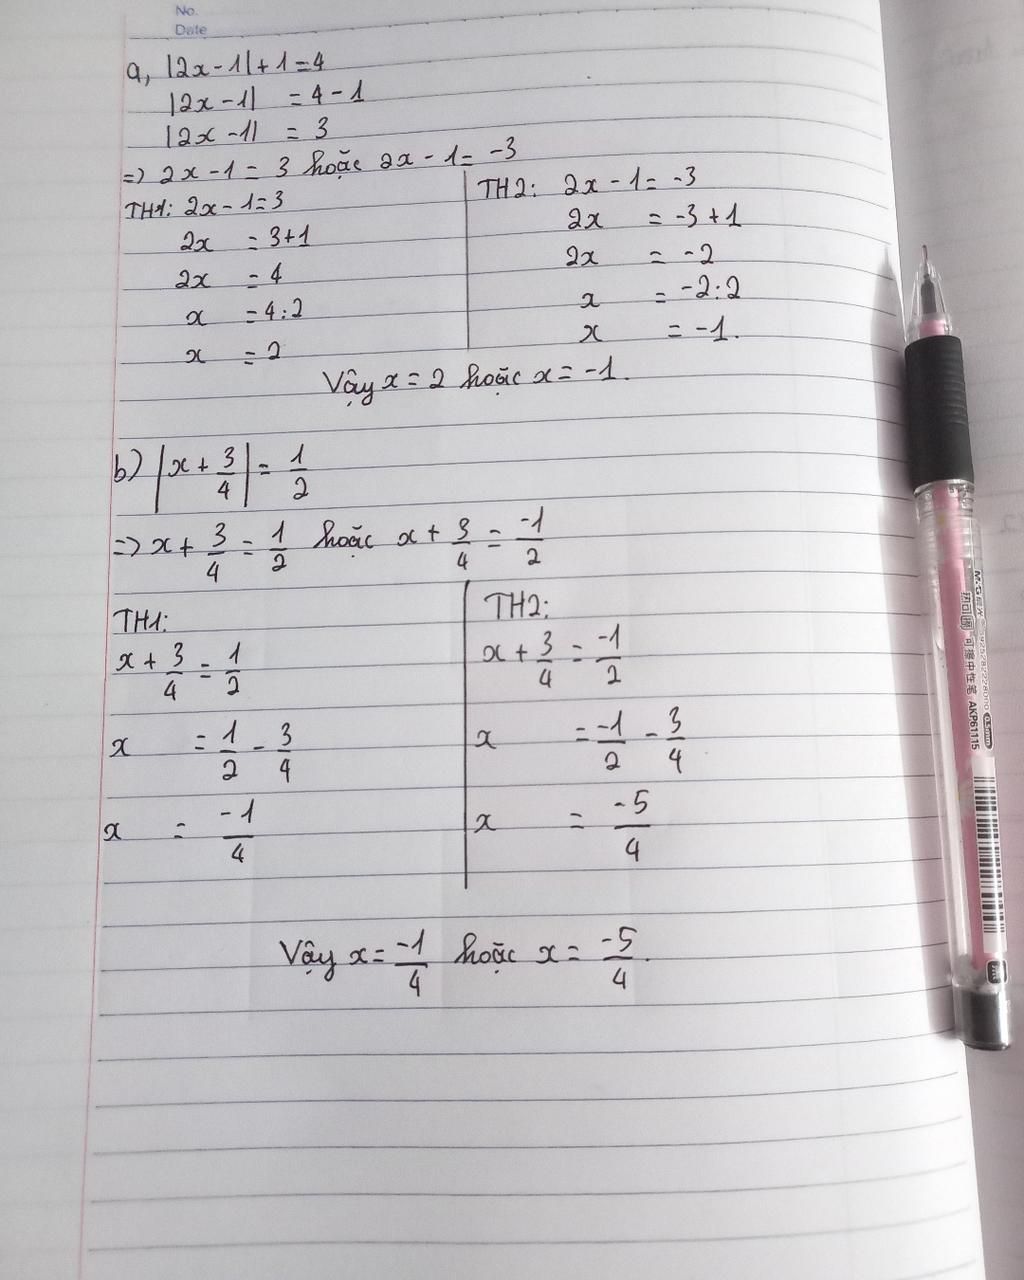 No.
Date
a, |2x - 1| + 1 = 4
|2x - 1| = 4 - 1
|2x - 1| = 3
=> 2x - 1 = 3 hoặc 2x - 1 = -3
TH1: 2x - 1 = 3
2x = 3+1
2x = 4
x = 4:2
x = 2
TH2: 2x - 1 = -3
2x = -3 + 1
2x = -2
x = -2:2
x = -1.
Vậy x = 2 hoặc x = -1.
b) |x + 3/4| = 1/2
=> x + 3/4 = 1/2 hoặc x + 3/4 = -1/2
TH1:
x + 3/4 = 1/2
x = 1/2 - 3/4
x = -1/4
TH2:
x + 3/4 = -1/2
x = -1/2 - 3/4
x = -5/4
Vậy x = -1/4 hoặc x = -5/4.
M&G
可擦中性笔 AKP61115
0.5mm